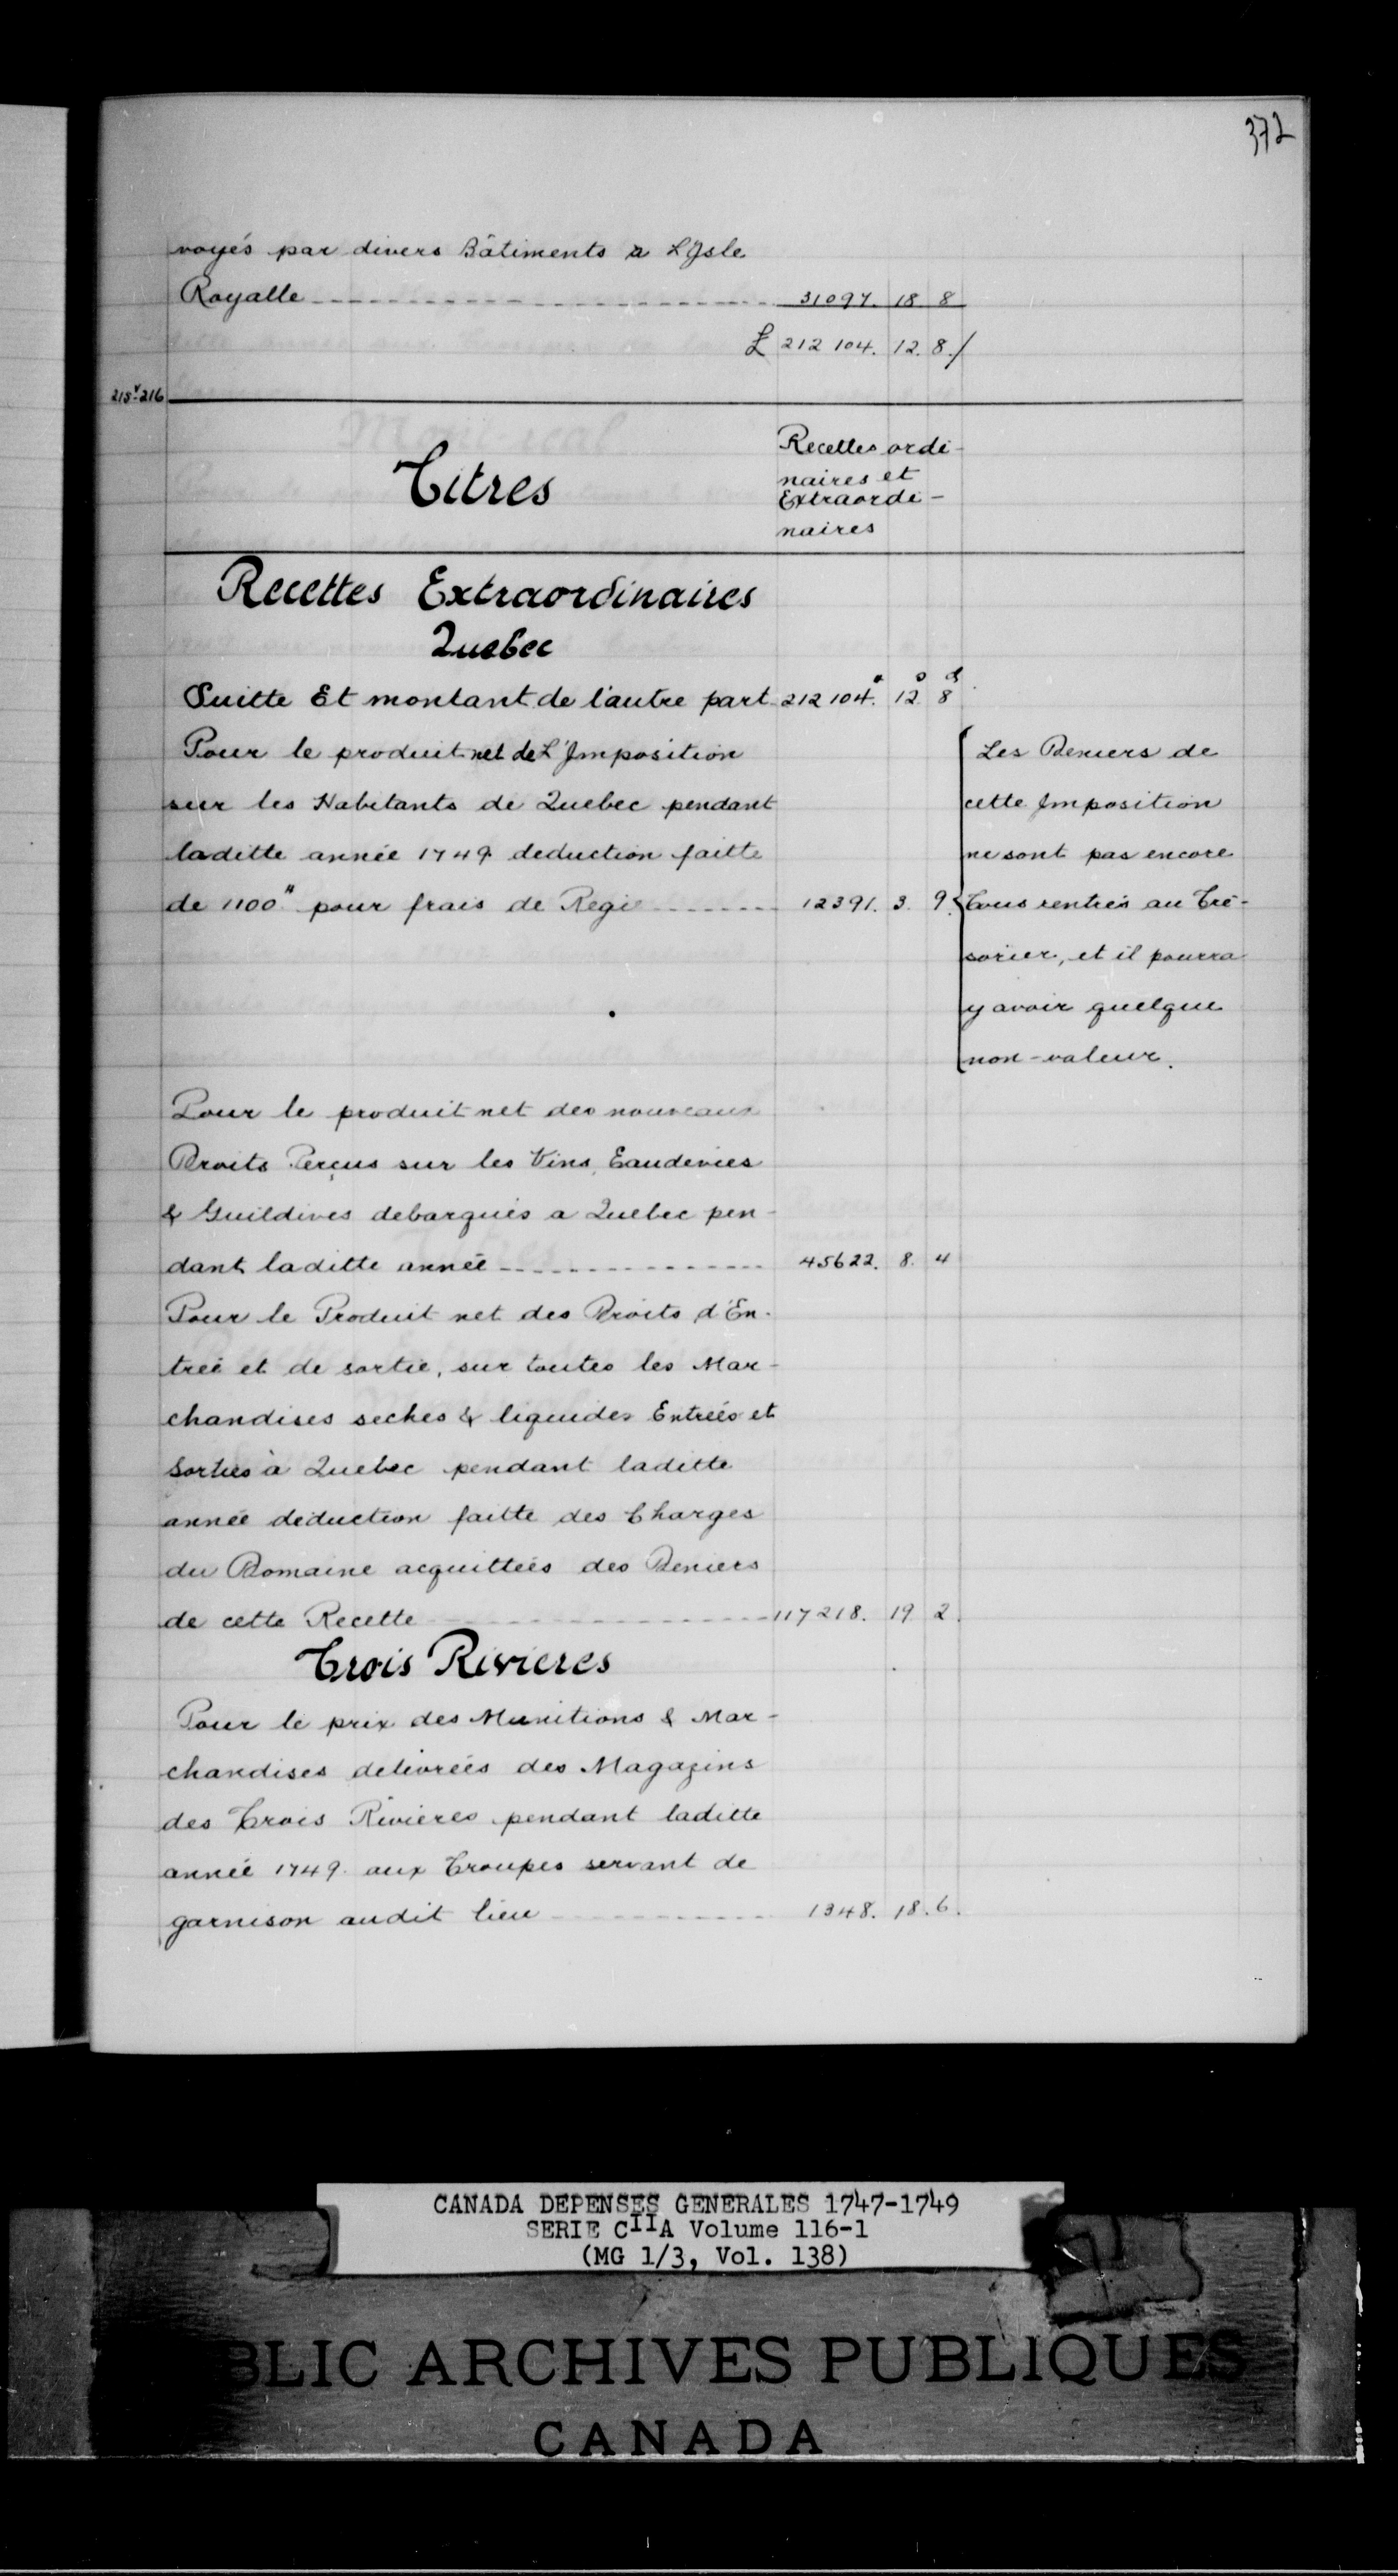 372
voyés par divers Bâtiments a L'Isle
Royalle 31097. 18 8
£ 212 104. 12. 8./
215v-216
Titres
Recettes ordi-
naires et
Extraordi-
naires
Recettes Extraordinaires
Quebec
Suitte Et montant de l'autre part 212 104.# 12s 8d
Pour le produit net de L'Imposition
sur les Habitants de Quebec pendant
laditte année 1749 deduction faitte
de 1100# pour frais de Regie 12391. 3. 9.
Les Deniers de
cette Imposition
ne sont pas encore
Tous rentrés au Tré-
sorier, et il pourra
y avoir quelque
non-valeur.
Pour le produit net des nouveaux
Droits Perçus sur les Vins, Eaudevies
& Guildives debarqués a Quebec pen-
dant laditte année 45622. 8. 4
Pour le Produit net des Droits d'En-
trée et de sortie, sur toutes les Mar-
chandises seches & liquides Entrées et
Sorties à Quebec pendant laditte
année déduction faitte des Charges
du Domaine acquittées des Deniers
de cette Recette 117218. 19. 2.
Trois Rivieres
Pour le prix des Munitions & Mar-
chandises delivrées des Magazins
des Trois Rivieres pendant laditte
année 1749 aux Troupes servant de
garnison audit lieu 1348. 18. 6.
CANADA DEPENSES GENERALES 1747-1749
SERIE CIIA Volume 116-1
(MG 1/3, Vol. 138)
BLIC ARCHIVES PUBLIQUES
CANADA